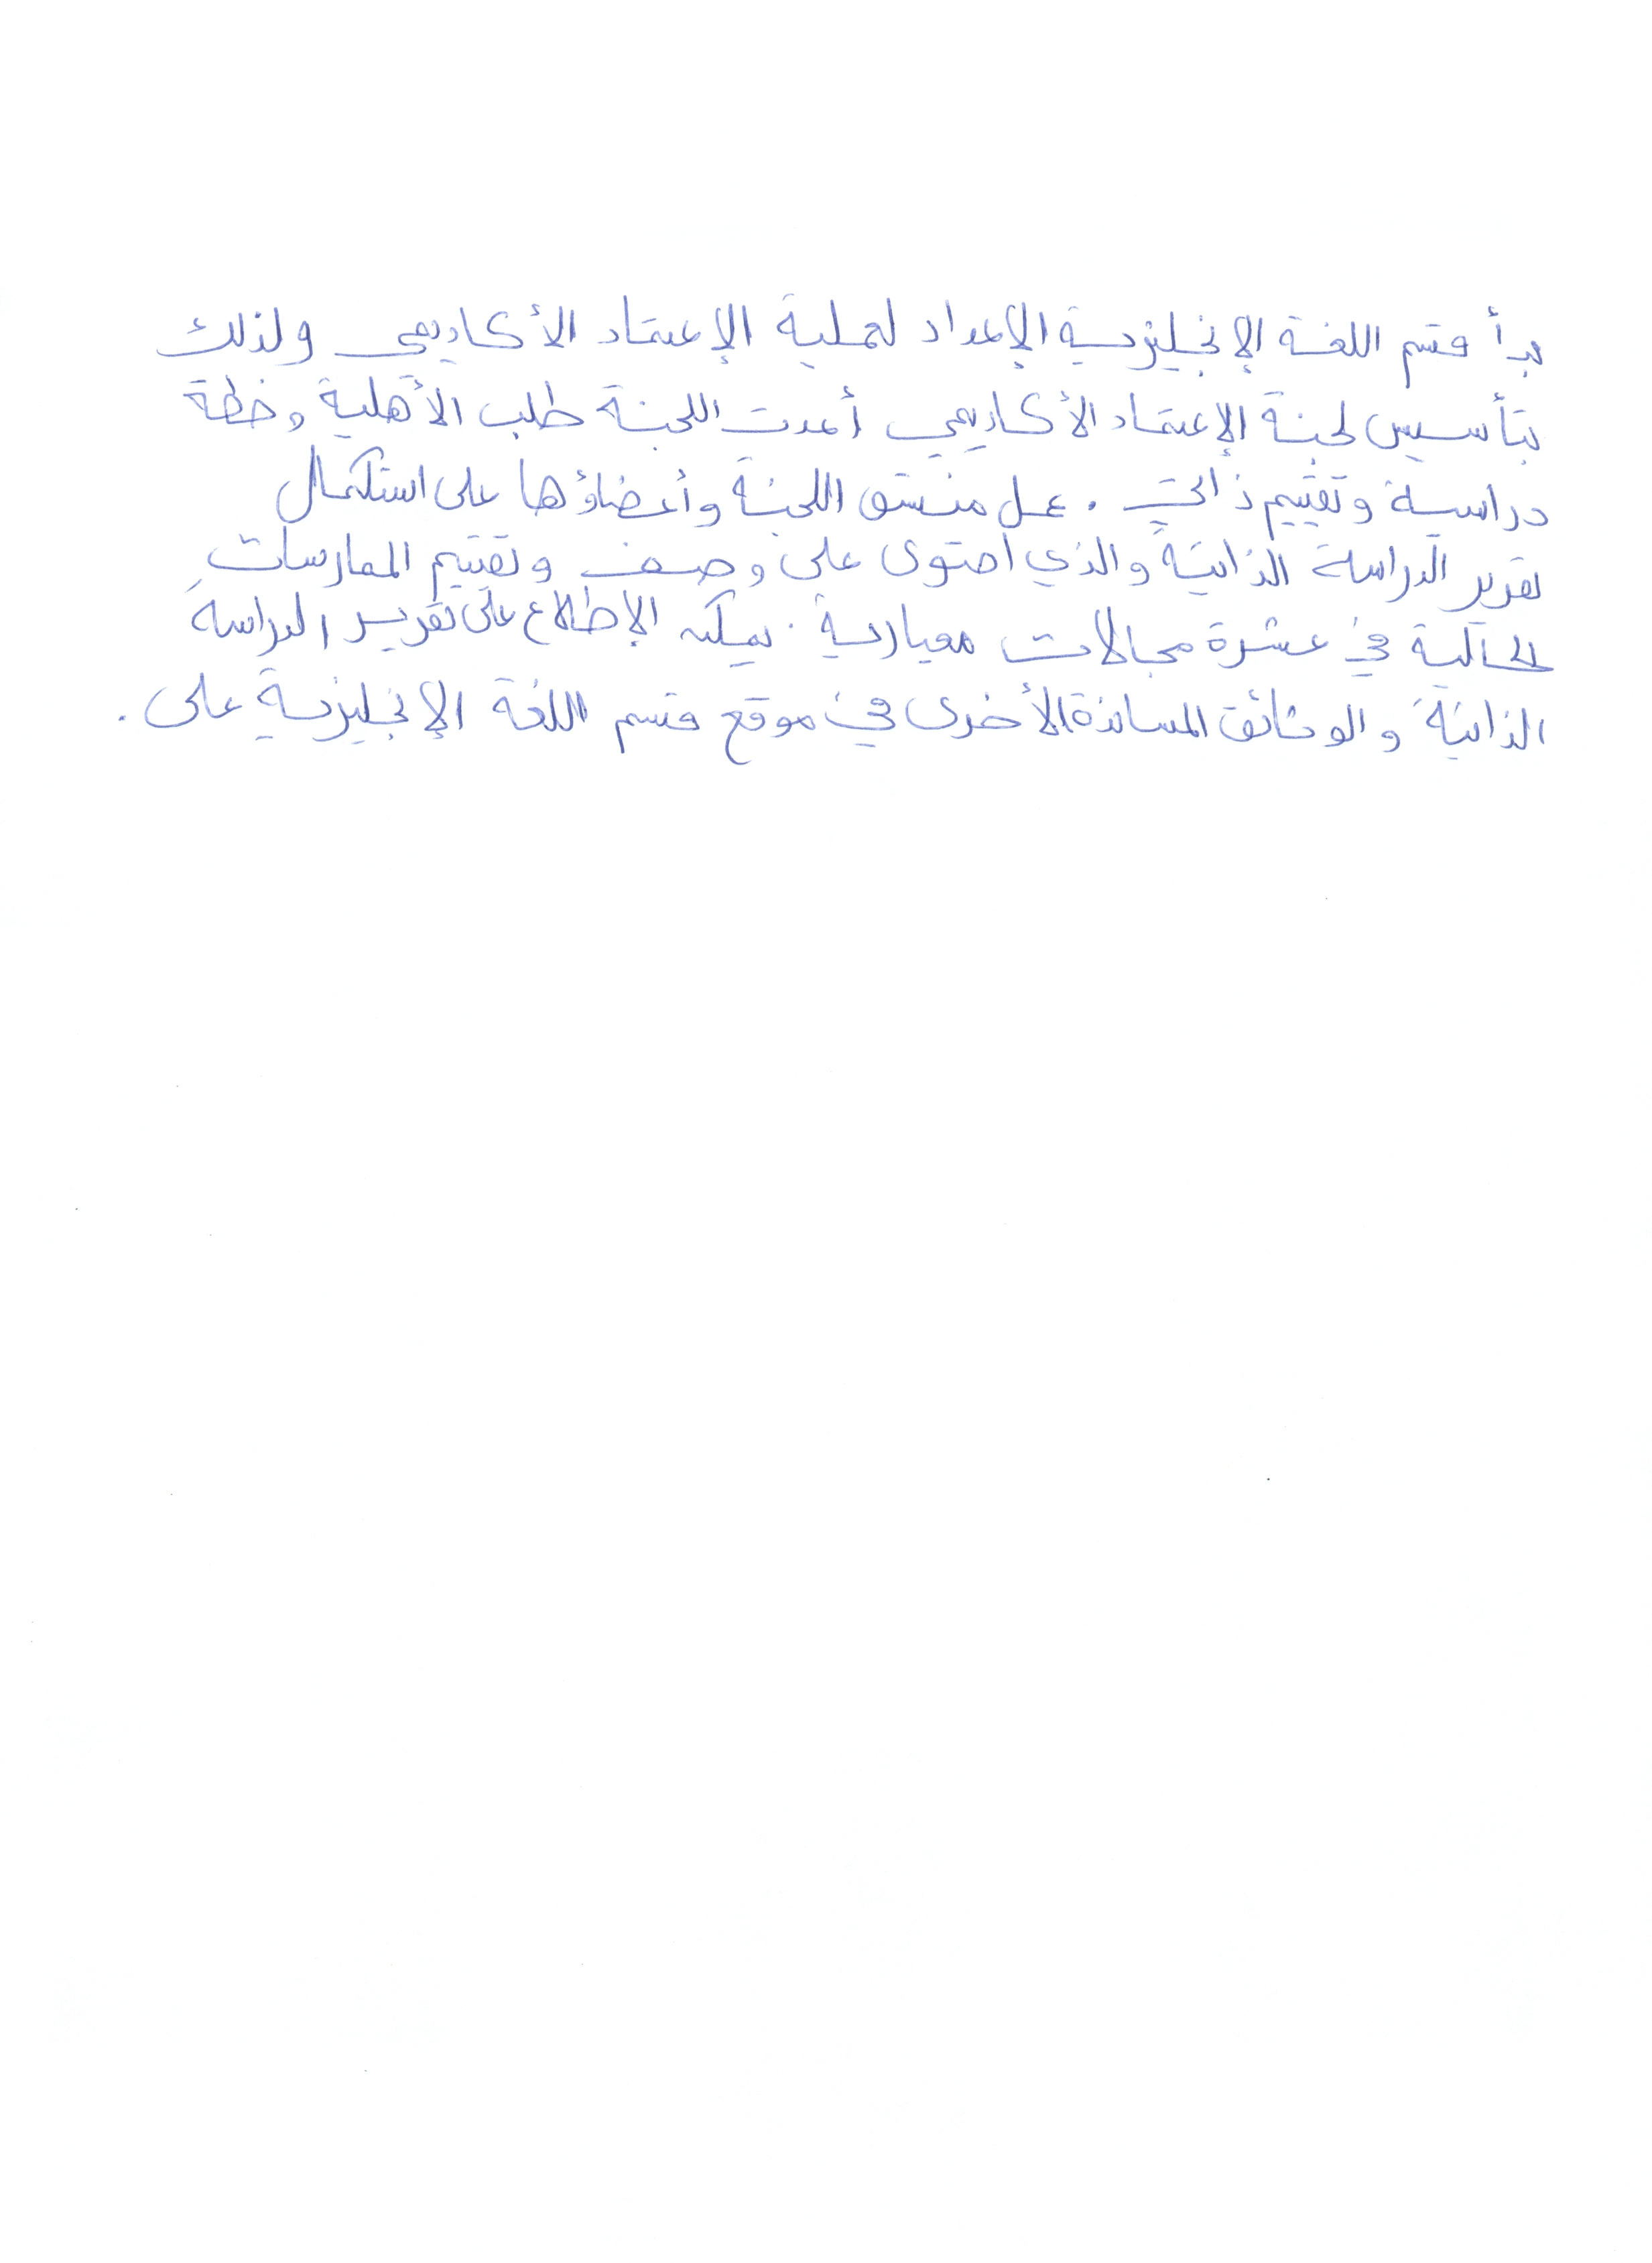 بدأ قسم اللغة الإنجليزية الإعداد لعملية الإعتماد الأكاديمي ولذلك
بتأسيس لجنة الإعتماد الأكاديمي أعدت اللجنة طلب الأهلية وخطة
دراسية وتقييم ذاتي . عمل منسق اللجنة وأعضاؤها على استكمال
تقرير الدراسة الذاتية والذي احتوى على وصف وتقييم الممارسات
الحالية في عشرة مجالات معيارية . يمكن الإطلاع على تقرير الدراسة
الذاتية والوثائق المساندة الأخرى في موقع قسم اللغة الإنجليزية على .